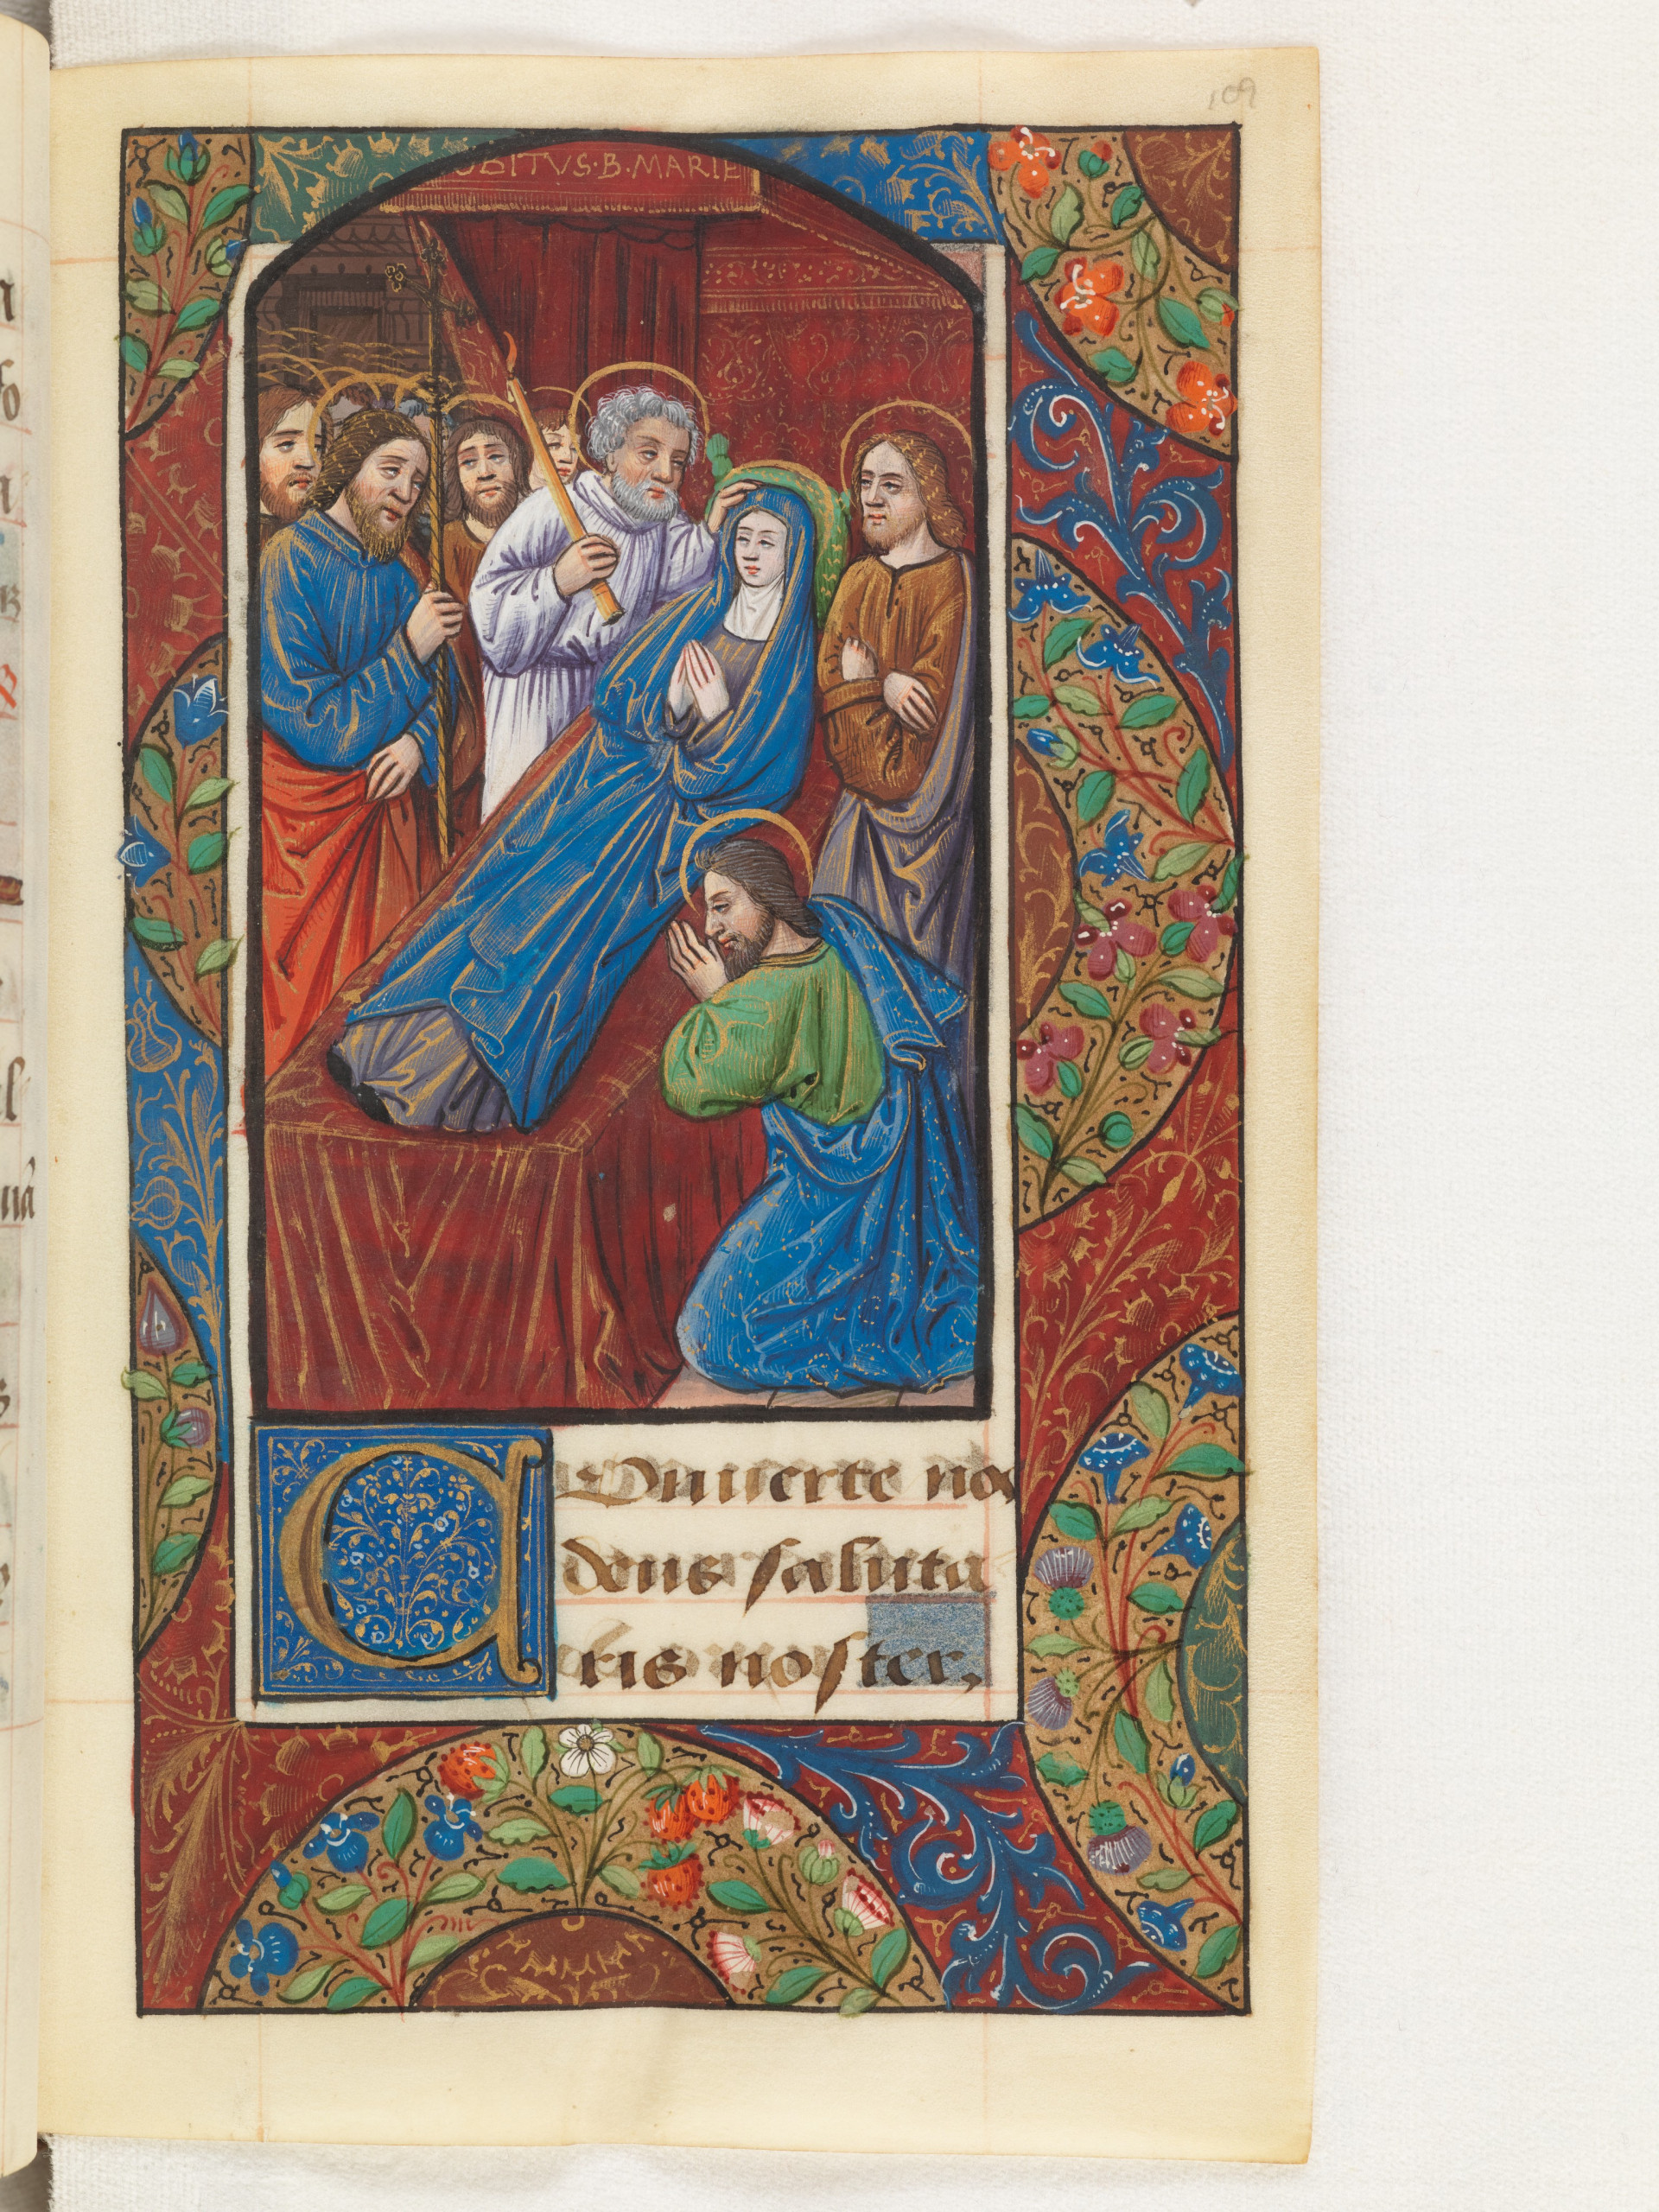 109
OBITVS·B·MARIE
COnuerte nos
deus saluta
ris noster,